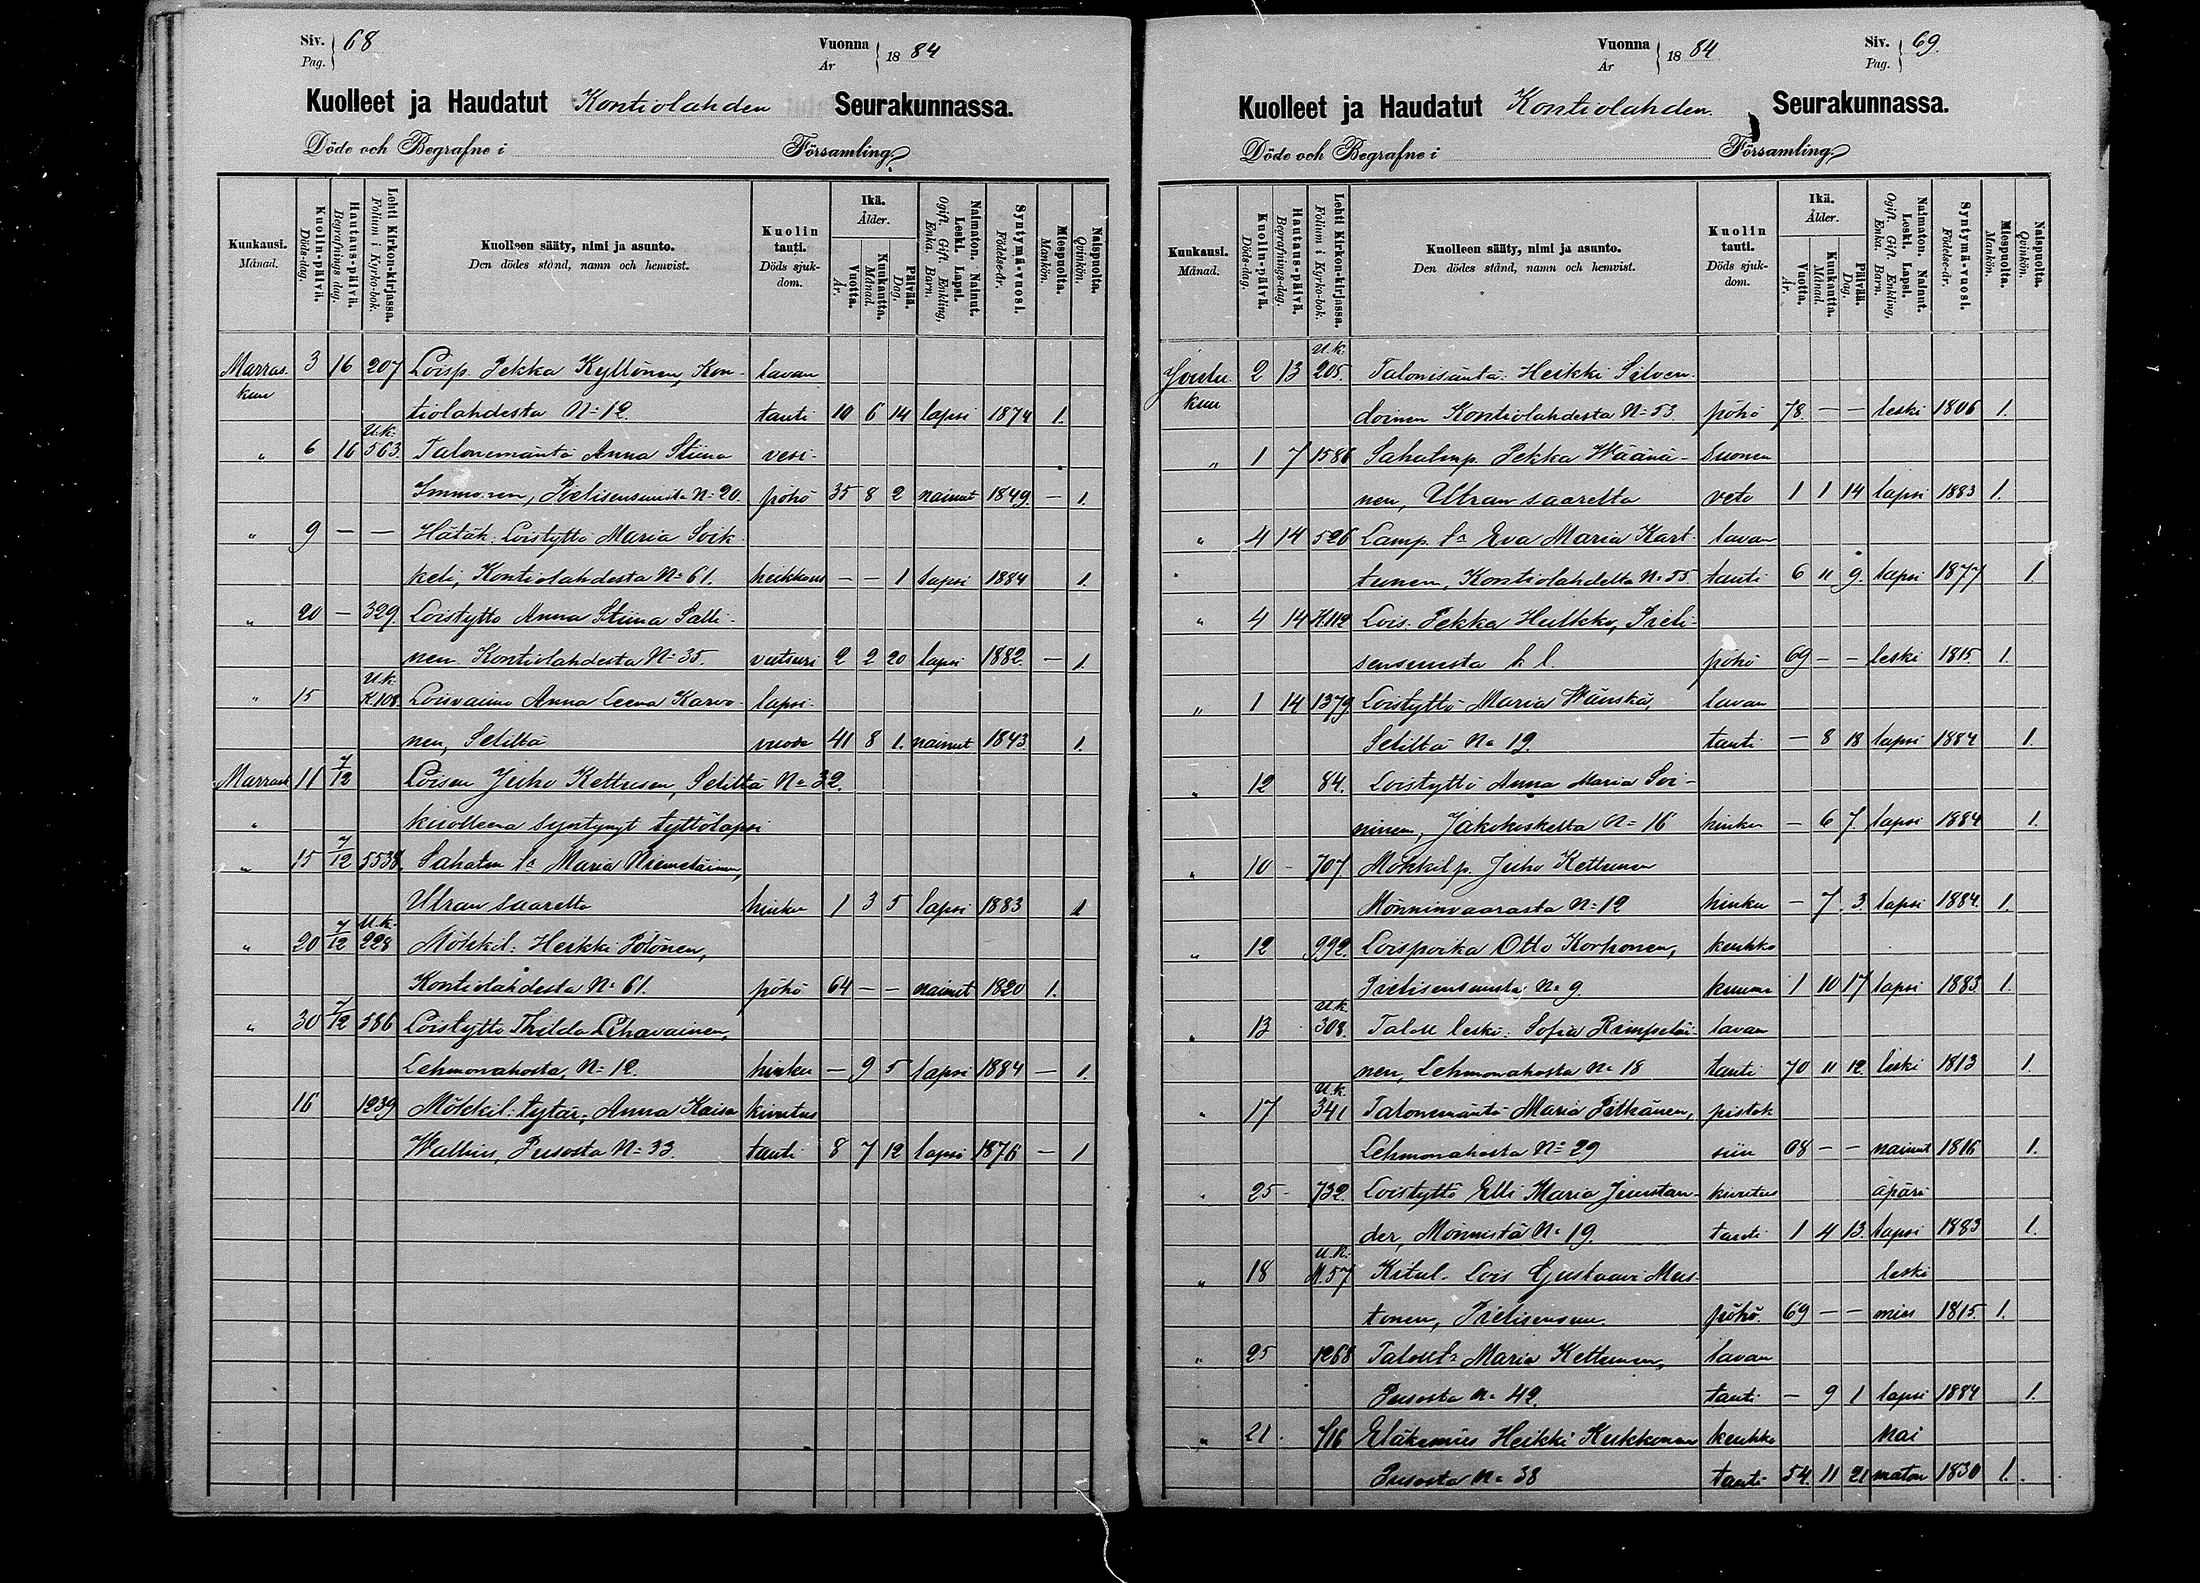 Siv. 68
Pag.
Vuonna
År
1884
Kuolleet ja Haudatut Kontiolahden Seurakunnassa.
Döde och Begrafne i Församling
Kuukausi. Månad.
Kuolin-päivä. Döds-dag.
Hautaus-päivä. Begrafnings dag.
Lehti Kirkon-kirjassa. Folium i Kyrko-bok.
Kuolleen sääty, nimi ja asunto. Den dödes stånd, namn och hemvist.
Kuolin tauti. Döds sjukdom.
Ikä. Ålder.
Vuotta. År.
Kuukautta. Månad.
Päivää. Dag.
Naimaton. Nainut. Leski. Lapsi. Ogift. Gift. Enkling. Enka. Barn.
Syntymä-vuosi. Födelse-år.
Miespuolta. Mankön.
Naispuolta. Qvinkön.
Marras- 3 16 207 Loisp. Pekka Kyllönen, Kon- lavan
kuu tiolahdesta N=12. tauti 10 6 14 lapsi 1874 1.
U.k.
" 6 16 563. Talonemäntä Anna Stiina vesi-
Immonen, Pielisensuusta N=20. pöhö 35 8 2 nainut 1849. — 1.
" 9 — — Hätäk: Loistyttö Maria Soik-
keli, Kontiolahdesta N=61. heikkous — — 1 lapsi 1884 1.
" 20 — 329. Loistyttö Anna Stiina Salli-
nen. Kontiolahdesta N=35. 2 2 20 lapsi 1882. — 1.
U.k.
" 15 K.108. Loisvaimo Anna Leena Karvo- lapsi-
nen, Seliltä vuode 41 8 1. nainut 1843. 1.
Marrask 11 7/12 Loisen Juho Kettusen, Seliltä N=32.
" kuolleena syntynyt tyttölapsi
" 15 7/12 5538. Sahatm ls Maria
Utran saarelta hinku 1 3 5 lapsi 1883 1
U.k.
" 20 7/12 228 Mökkil: Heikki Pölönen,
Kontiolahdesta N=61. pöhö 64 — — nainut 1820 1.
" 30 7/12 586 Loistyttö Thilda Lihavainen,
Lehmonahosta, N=12. hinku — 9 5 lapsi 1884 — 1.
16 1239 Mökkil: tytär, Anna Kaisa kivutus
Wallius, Pusosta N=33. tauti 8 7 12 lapsi 1876 — 1
Vuonna
År
1884
Siv. 69.
Pag.
Kuolleet ja Haudatut Kontiolahden. Seurakunnassa.
Döde och Begrafne i Församling
Kuukausi. Månad.
Kuolin-päivä. Döds-dag.
Hautaus-päivä. Begrafnings-dag.
Lehti Kirkon-kirjassa. Folium i Kyrko-bok.
Kuolleen sääty, nimi ja asunto. Den dödes stånd, namn och hemvist.
Kuolin tauti. Döds sjukdom.
Ikä. Ålder.
Vuotta. År.
Kuukautta. Månad.
Päivää. Dag.
Naimaton. Nainut. Leski. Lapsi. Ogift. Gift. Enkling. Enka. Barn.
Syntymä-vuosi. Födelse-år.
Miespuolta. Mankön.
Naispuolta. Qvinkön.
U.k.
Joulu- 2 13 205. Talonisäntä: Heikki Silven-
kuu doinen Kontiolahdesta N=53. pöhö 78. — — leski 1806 1.
" 1 7 1586 Sahatmp. Pekka Wäänä- Suonen
nen, Utran saarelta veto 1 1 14 lapsi 1883 1.
" 4 14 526 Lamp. ls Eva Maria Kart- lavan
tunen, Kontiolahdelta N=55 tauti 6 11 9 lapsi 1877 1
" 4 14 K.112 Lois. Pekka Hulkko, Pieli-
sensuusta k l. pöhö 69 — — leski 1815 1.
" 1 14 1379. Loistyttö Maria Wänskä, lavan
Seliltä N=19. tauti — 8 18 lapsi 1884 1.
" 12 84. Loistyttö Anna Maria Soi-
ninen, Jakokoskelta N=16 hinku — 6 7. lapsi 1884 1.
" 10 - 707 Mökkilp. Juho Kettunen
Mönninvaarasta N=12 hinku — 7. 3. lapsi 1884. 1.
" 12 992. Loispoika Otto Korhonen, keuhko
Pielisensuusta N=9. kuume 1 10 17 lapsi 1883. 1.
U.k.
" 13 308. Talon leski: Sofia Rimpeläi- lavan
nen, Lehmonahosta N=18 tauti 70 11 12. leski 1813 1.
U.k.
" 17 341 Talonemäntä Maria Pitkänen, pistok
Lehmonahosta N=29 siin 68 — — nainut 1816 1.
" 25 - 732. Loistyttö Elli Maria Juustan- kivutus äpärä
der, Mönnistä N=19. tauti 1 4 13. lapsi 1883 1.
U.k.
" 18 K.57 Kitul. Lois Gustaavi Mus- leski
tonen, Pielisensuu. pöhö. 69 — — mies 1815. 1.
" 25 1268 Talon ls Maria Kettunen, lavan
Pusosta N=42. tauti — 9 1 lapsi 1884 1.
" 21. 716 Eläkemies Heikki Keikkonen keuhko nai
Pusosta N=38 tauti 54. 11 21 maton 1830 1.